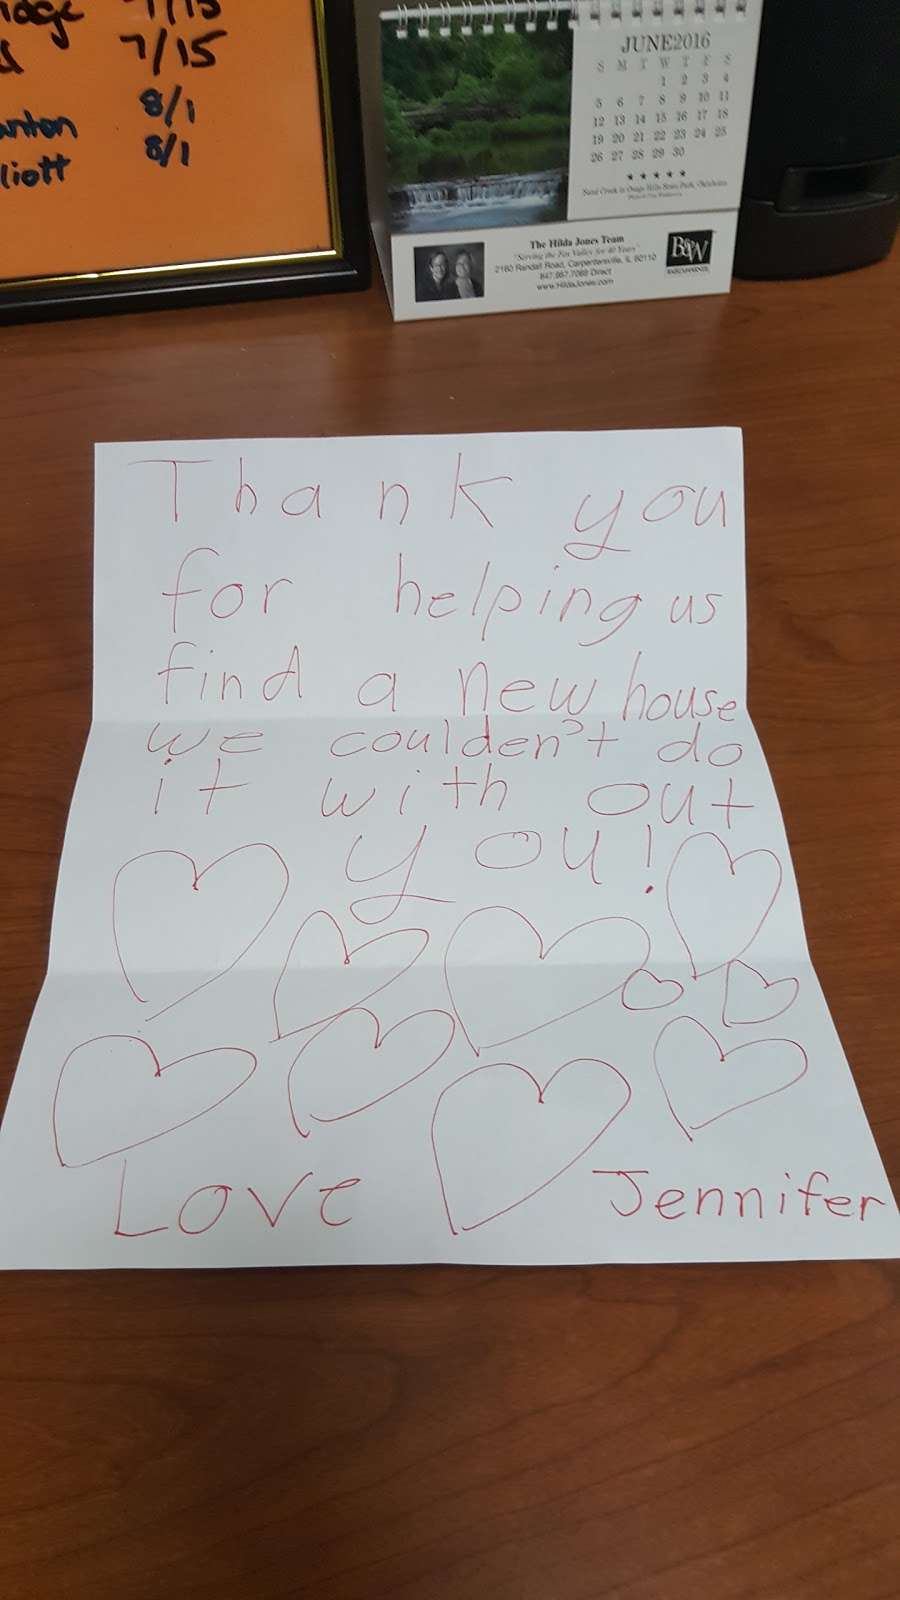 7/15
7/15
8/1
8/1
JUNE2016
S M T W T F S
1 2 3 4
5 6 7 8 9 10 11
12 13 14 15 16 17 18
19 20 21 22 23 24 25
26 27 28 29 30
★ ★ ★ ★ ★
Sand Creek in Osage Hills State Park, Oklahoma
The Hilda Jones Team
"Serving the Fox Valley for 40 Years"
2160 Randall Road, Carpentersville, IL 60110
Direct
www.HildaJones.com
B&W
Thank you
for helping us
find a new house
we coulden't do
it with out
you!
Love Jennifer